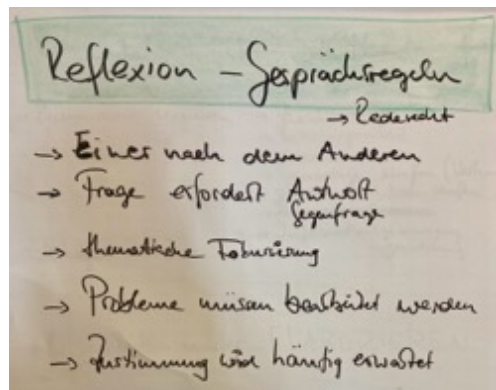 Reflexion – Gesprächsregeln
→ Rederecht
→ Einer nach dem Anderen
→ Frage erfordert Antwort
Gegenfrage
→ thematische Fokusierung
→ Probleme müssen werden
→ Zustimmung wird häufig erwartet